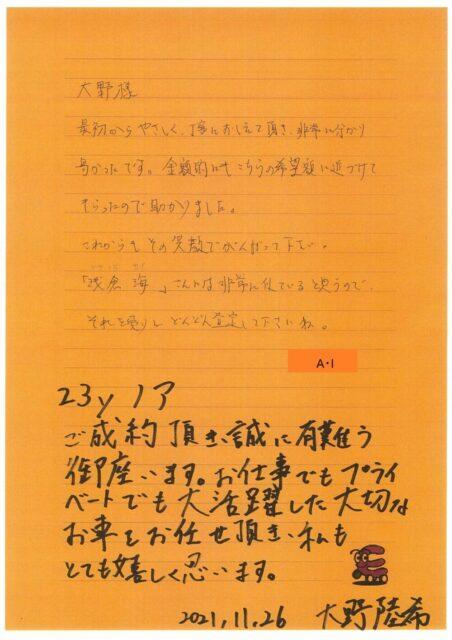 大野様
最初からやさしく、丁寧におしえて頂き、非常に分かり
易かったです。金額的にもこちらの希望額に近づけて
もらったので助かりました。
これからもその笑顔でがんばって下さい。
「浅倉 海」さんには非常に似ていると思うので、
それを売りにどんどん査定して下さいね。
A・I
23y ノア
ご成約頂き、誠に有難う
御座います。お仕事でもプライ
ベートでも大活躍した大切な
お車をお任せ頂き、私も
とても嬉しく思います。
2021.11.26 大野陸希